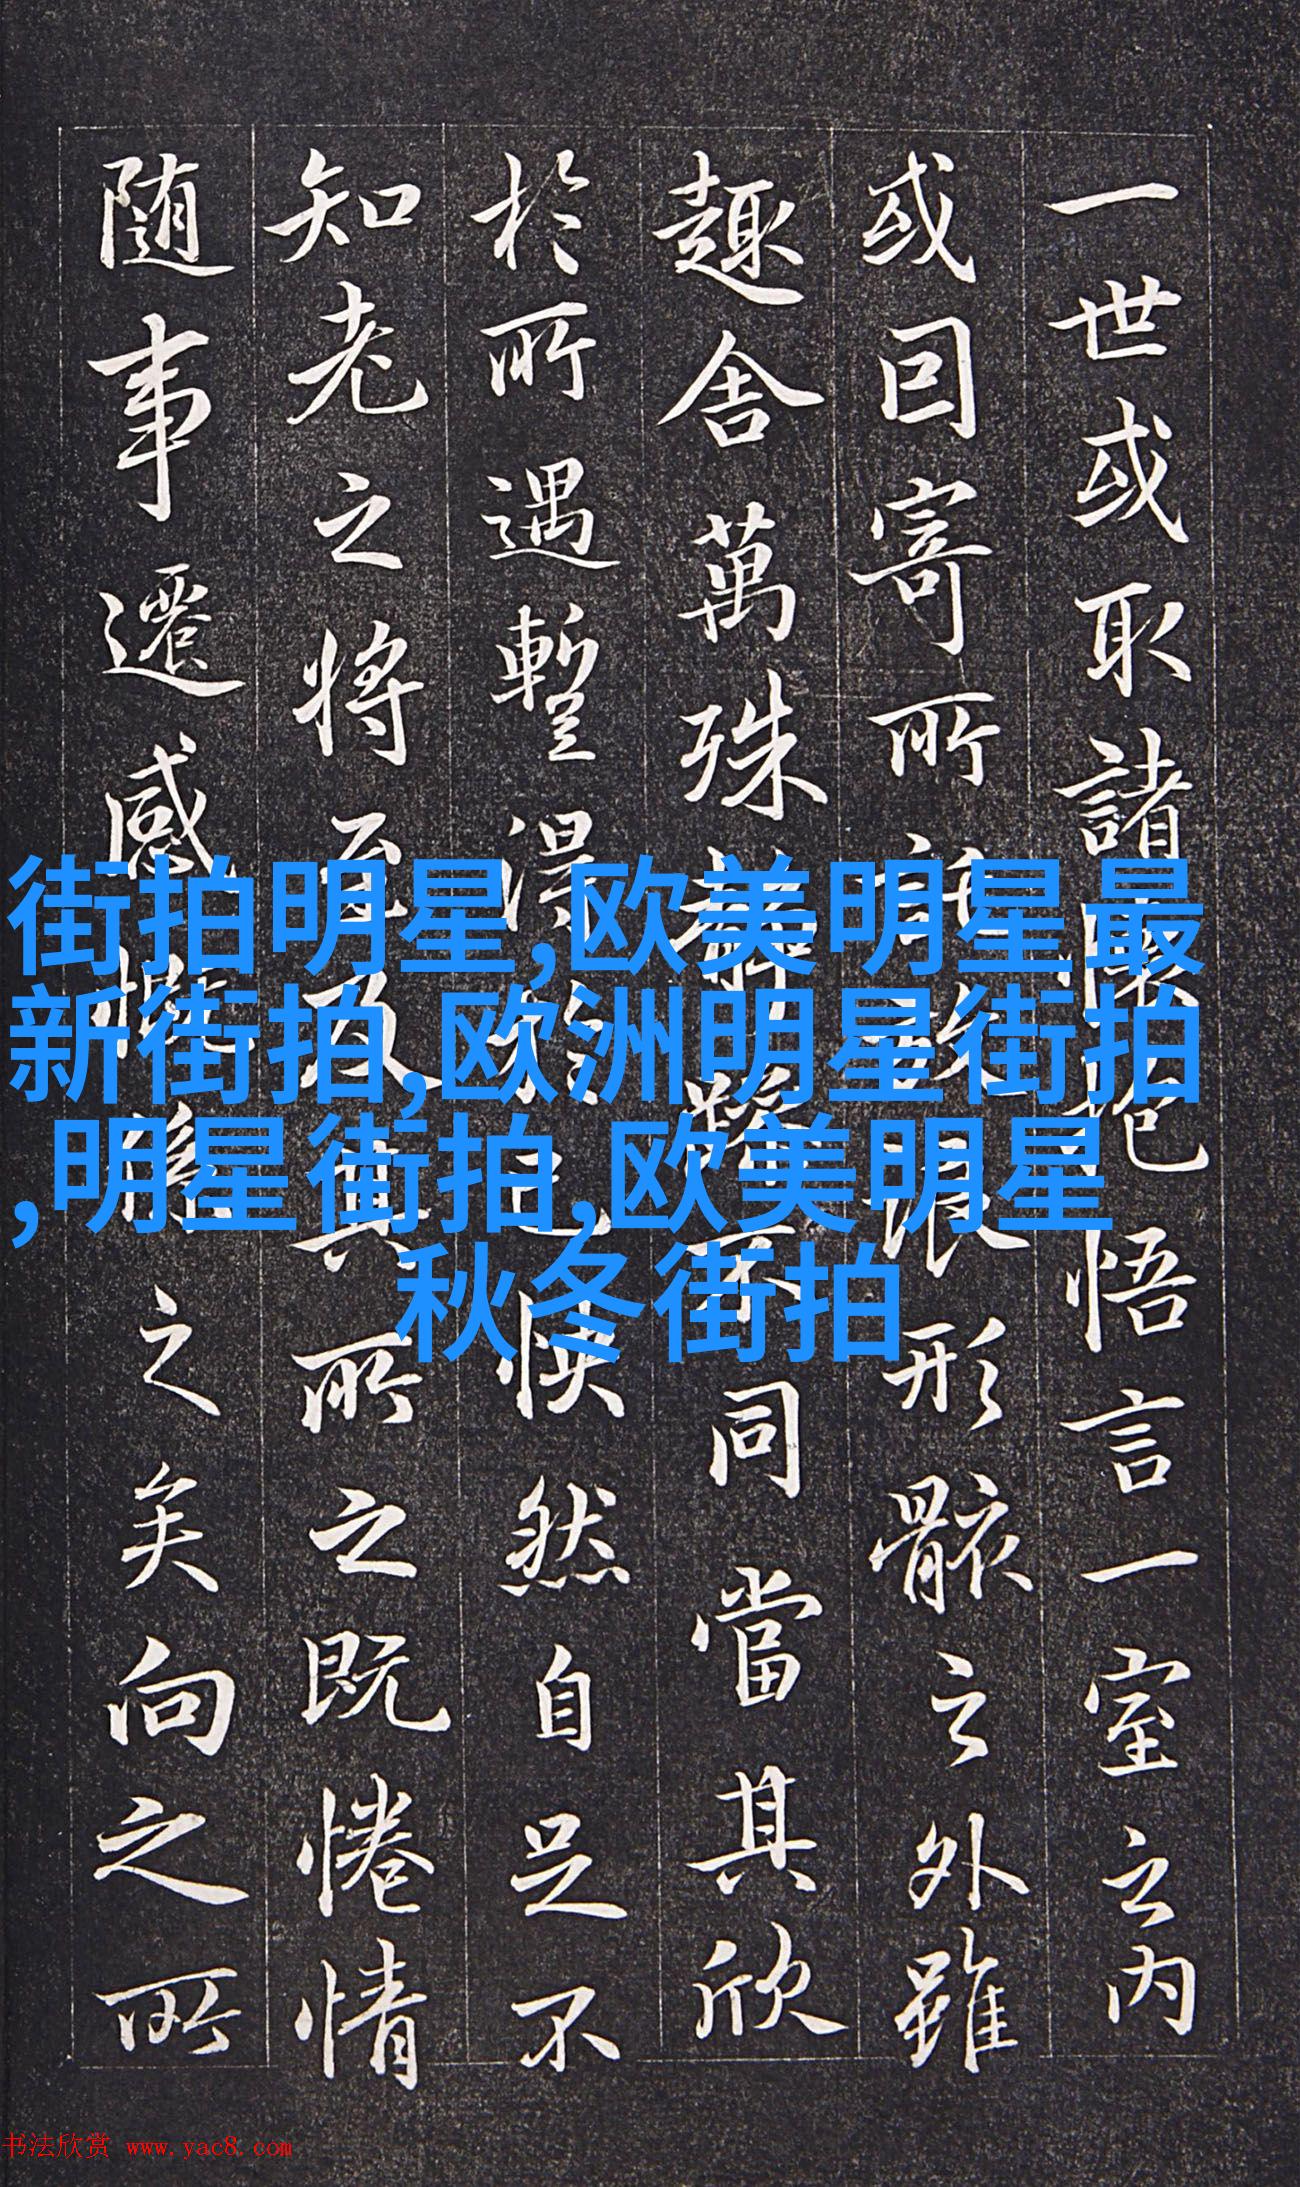 一世或取諸懷抱悟言一室之内
或因寄所託放浪形骸之外雖
趣舍萬殊静躁不同當其欣
於所遇暫得於己怏然自足不
知老之將至及其所之既惓情
随事遷感慨係之矣向之所
街拍明星,欧美明星最
新街拍,欧洲明星街拍
,明星街拍,欧美明星
秋冬街拍
书法欣赏 www.yac8.com